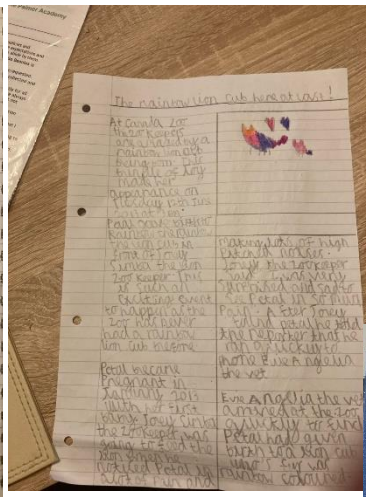 The rainbow lion cub here at last!
At Canada zoo
the zoo keepers
are amazed by a
rainbow lion cub
being born. This
bundle of joy
made her
appearance on
Tuesday 15th July
2013 at 7am.
Rainbow
the lion cub in
front of Joey
Simba the lion
zoo keeper this
is such an
exciting event
to happen as the
zoo has never
had a rainbow
lion cub before.
Petal became
Pregnant in
January 2013
with her first
baby. Joey Simba
the zoo keeper was
going to feed the
lion when he
noticed Petal in
alot of Pain and
making lots of high
pitched noises.
Joey the zoo keeper
was very
surprised and sad to
see Petal in so much
Pain. After Joey
found petal he told
the reporter that he
ran quickly to
phone Evie Angelia
the vet.
Evie Angelia the vet
arrived at the zoo
quickly to find
Petal had given
birth to a lion cub
who's fur was
rainbow coloured.